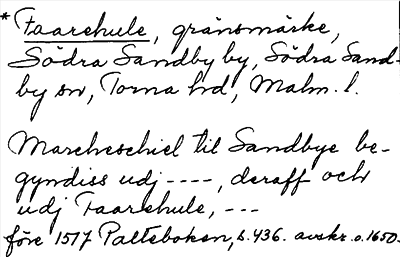 * Faarehule, gränsmärke,
Södra Sandby by, Södra Sand-
by sn, Torna hd, Malm. l.
Marcheschiel til Sandbye be-
gyndiss udj ----, deraff och
udj Faarehule, ---
före 1517 Palteboken, s. 436. avskr. o. 1650.